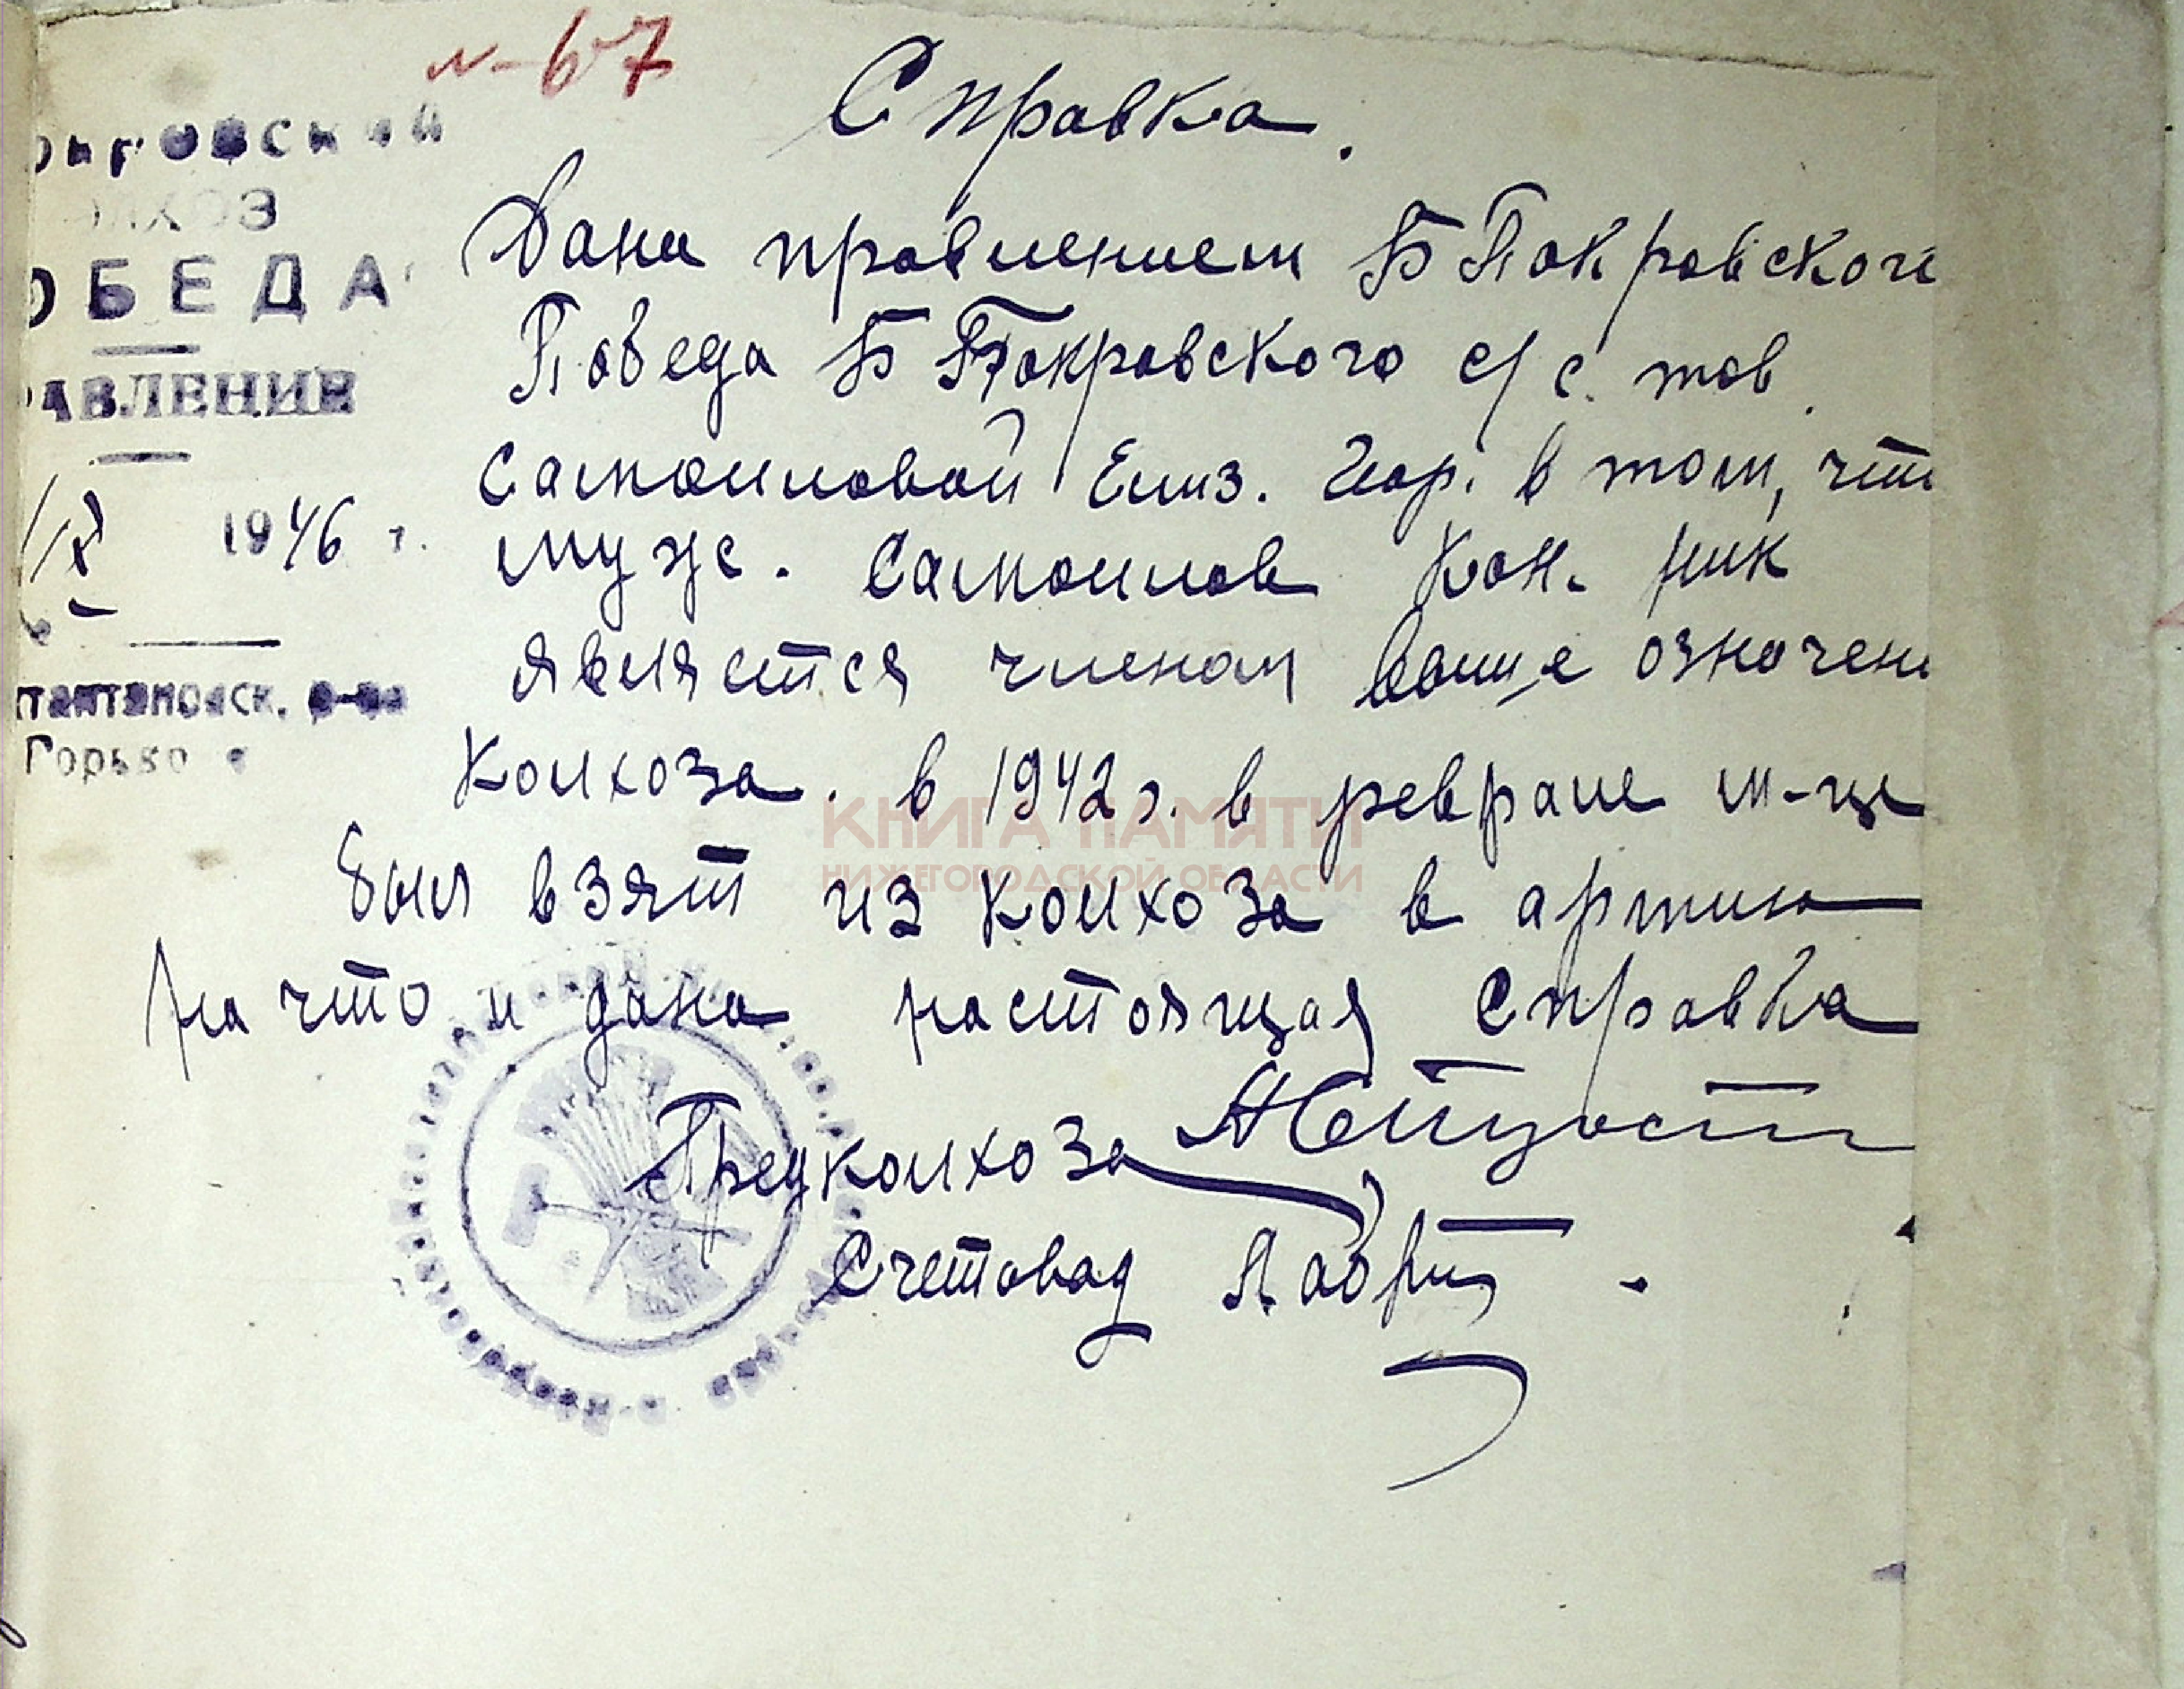 №-67
Справка.
окровский
ЛХОЗ
ОБЕДА
АВЛЕНИЕ
1946 г.
Горько
Дана правлением Б Покровског
Победа Б Покровского с/с. тов.
Самоиловой Елиз. Геор. в том, что
муж. Самоилов Кон. Ник
является членом выше означен
Колхоза. в 1942 г. в феврале м-це
был взят из колхоза в армию
на что и дана настоящая Справка
Предколхоза
Счетовод
КНИГА ПАМЯТИ
НИЖЕГОРОДСКОЙ ОБЛАСТИ